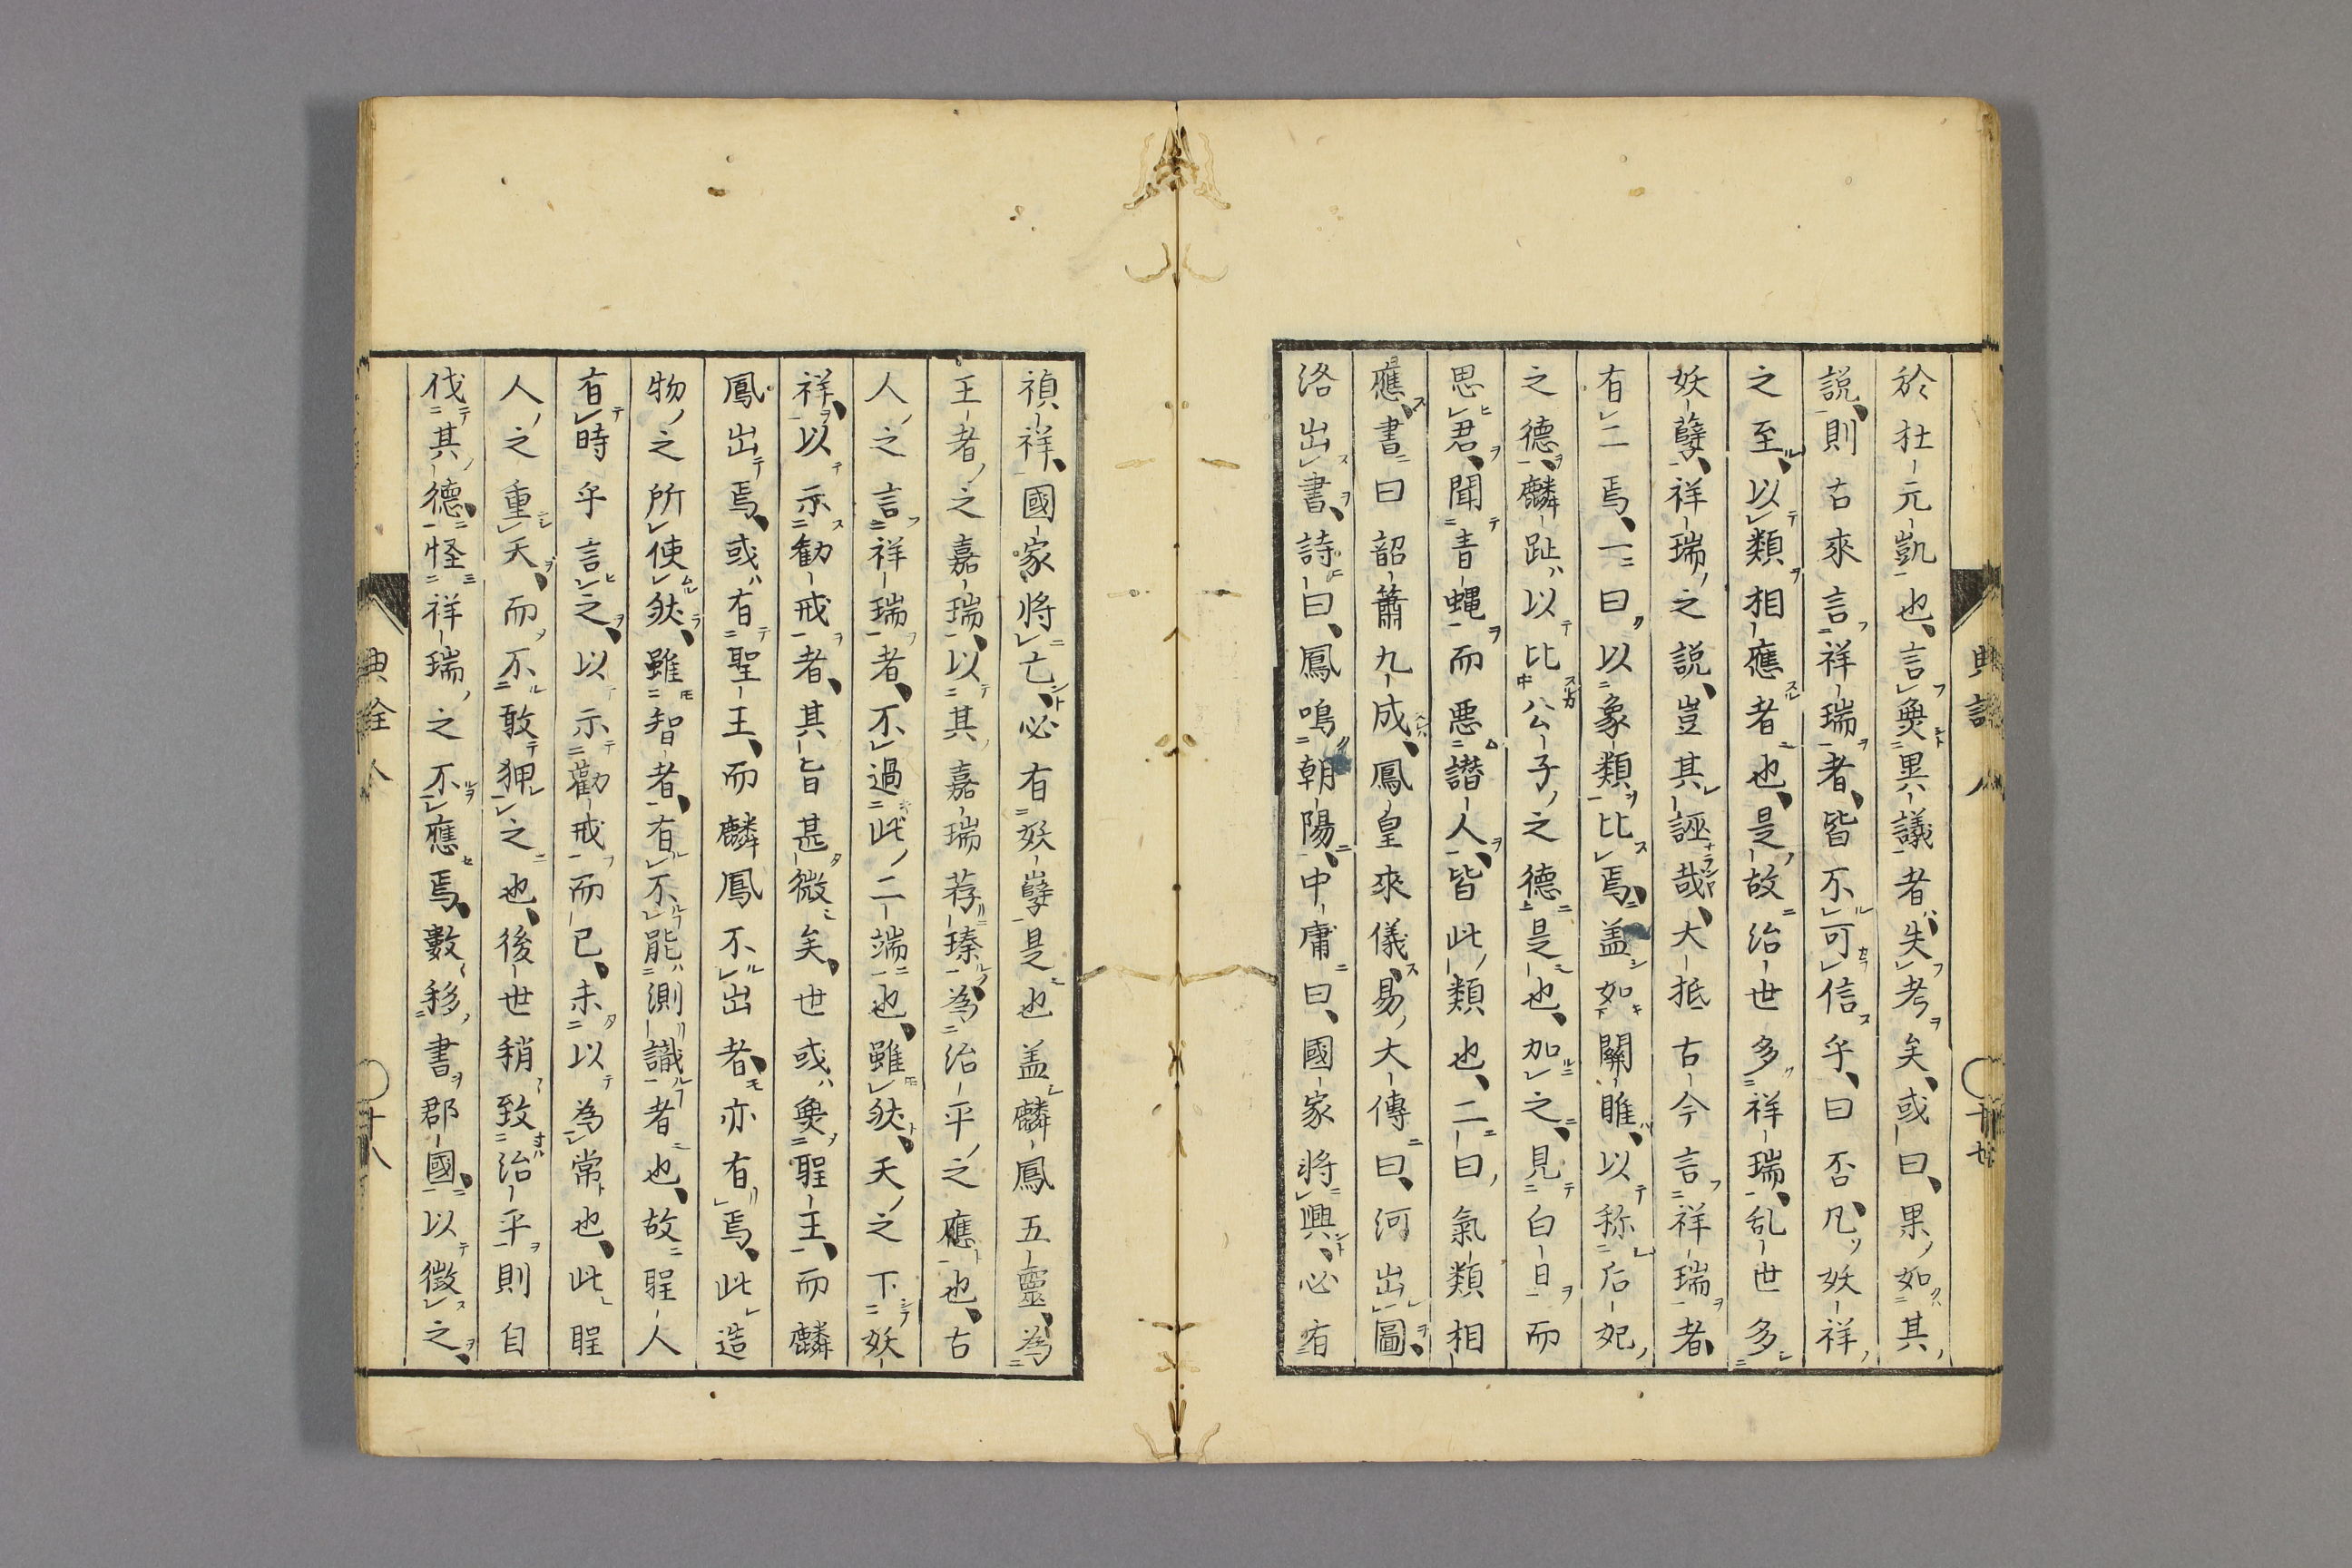 於杜元凱也、言無異議者、失考矣、或曰、果如其
説、則古來言祥瑞者、皆不可信乎、曰否、凡妖祥
之至、以類相應者也、是故治世多祥瑞、乱世多
妖孽、祥瑞之説、豈其誣哉、大抵古今言祥瑞者、
有二焉、一曰以象類比焉、盖如關雎、以称后妃
之德、麟趾、以比公子之德是也、加之、見白日而
思君、聞青蝿而悪譛人、皆此類也、二曰氣類相
應、書曰韶簫九成、鳳皇來儀、易大傳曰、河出圖、
洛出書、詩曰、鳳鳴朝陽、中庸曰、國家將興、必有
禎祥、國家將亡、必有妖孽是也盖麟鳳五靈、為
王者之嘉瑞、以其嘉瑞荐瑧、為治平之應也、古
人之言祥瑞者、不過此二端也、雖然、天之下妖
祥、以示勧戒者、其旨甚微矣、世或無聖王、而麟
鳳出焉、或有聖王、而麟鳳不出者、亦有焉、此造
物之所使然、雖智者、有不能測識者也、故聖人
有時乎言之、以示勸戒而已、未以為常也、此聖
人之重天、而不敢狎之也、後世稍致治平則自
伐其德、怪祥瑞之不應焉、數移書郡國、以徴之、
典詮 人
典詮 人
十八